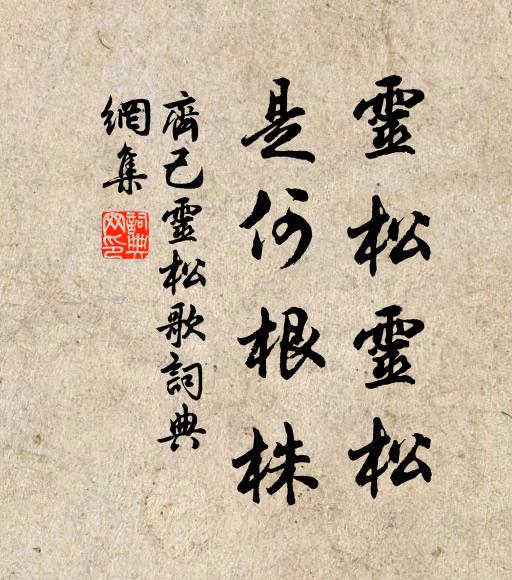 靈松靈松
是何根株
齊己靈松歌詞典
網集
詞典
网印